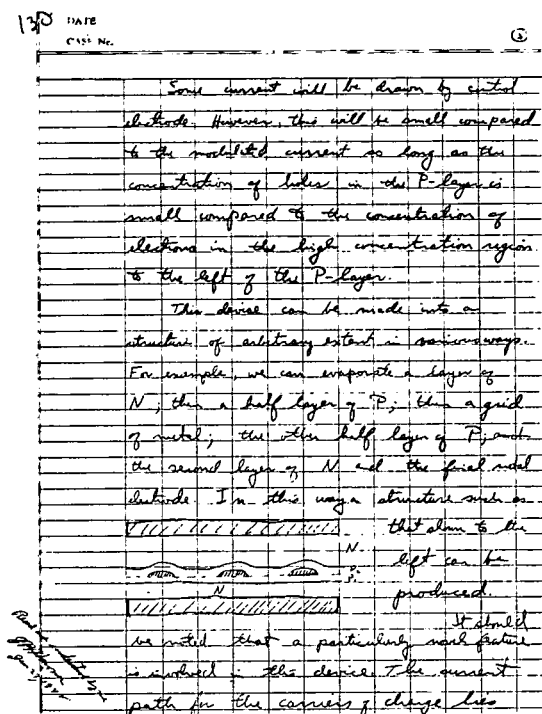 130
DATE
CASE No.
2
Some current will be drawn by control
electrode. However, this will be small compared
to the modulated current as long as the
concentration of holes in the P-layer is
small compared to the concentration of
electrons in the high concentration region
to the left of the P-layer.
This device can be made into a
structure of arbitrary extent in various ways.
For example, we can evaporate a layer of
N; then a half layer of P; then a grid
of metal; the other half layer of P; and
the second layer of N and the final metal
electrode. In this way a structure such as
that shown to the
left can be
produced.
N
P
P
N
It should
be noted that a particularly novel feature
is involved in this device. The current
path for the carriers of charge lies
Read and understood by me
Jan 27, 1948